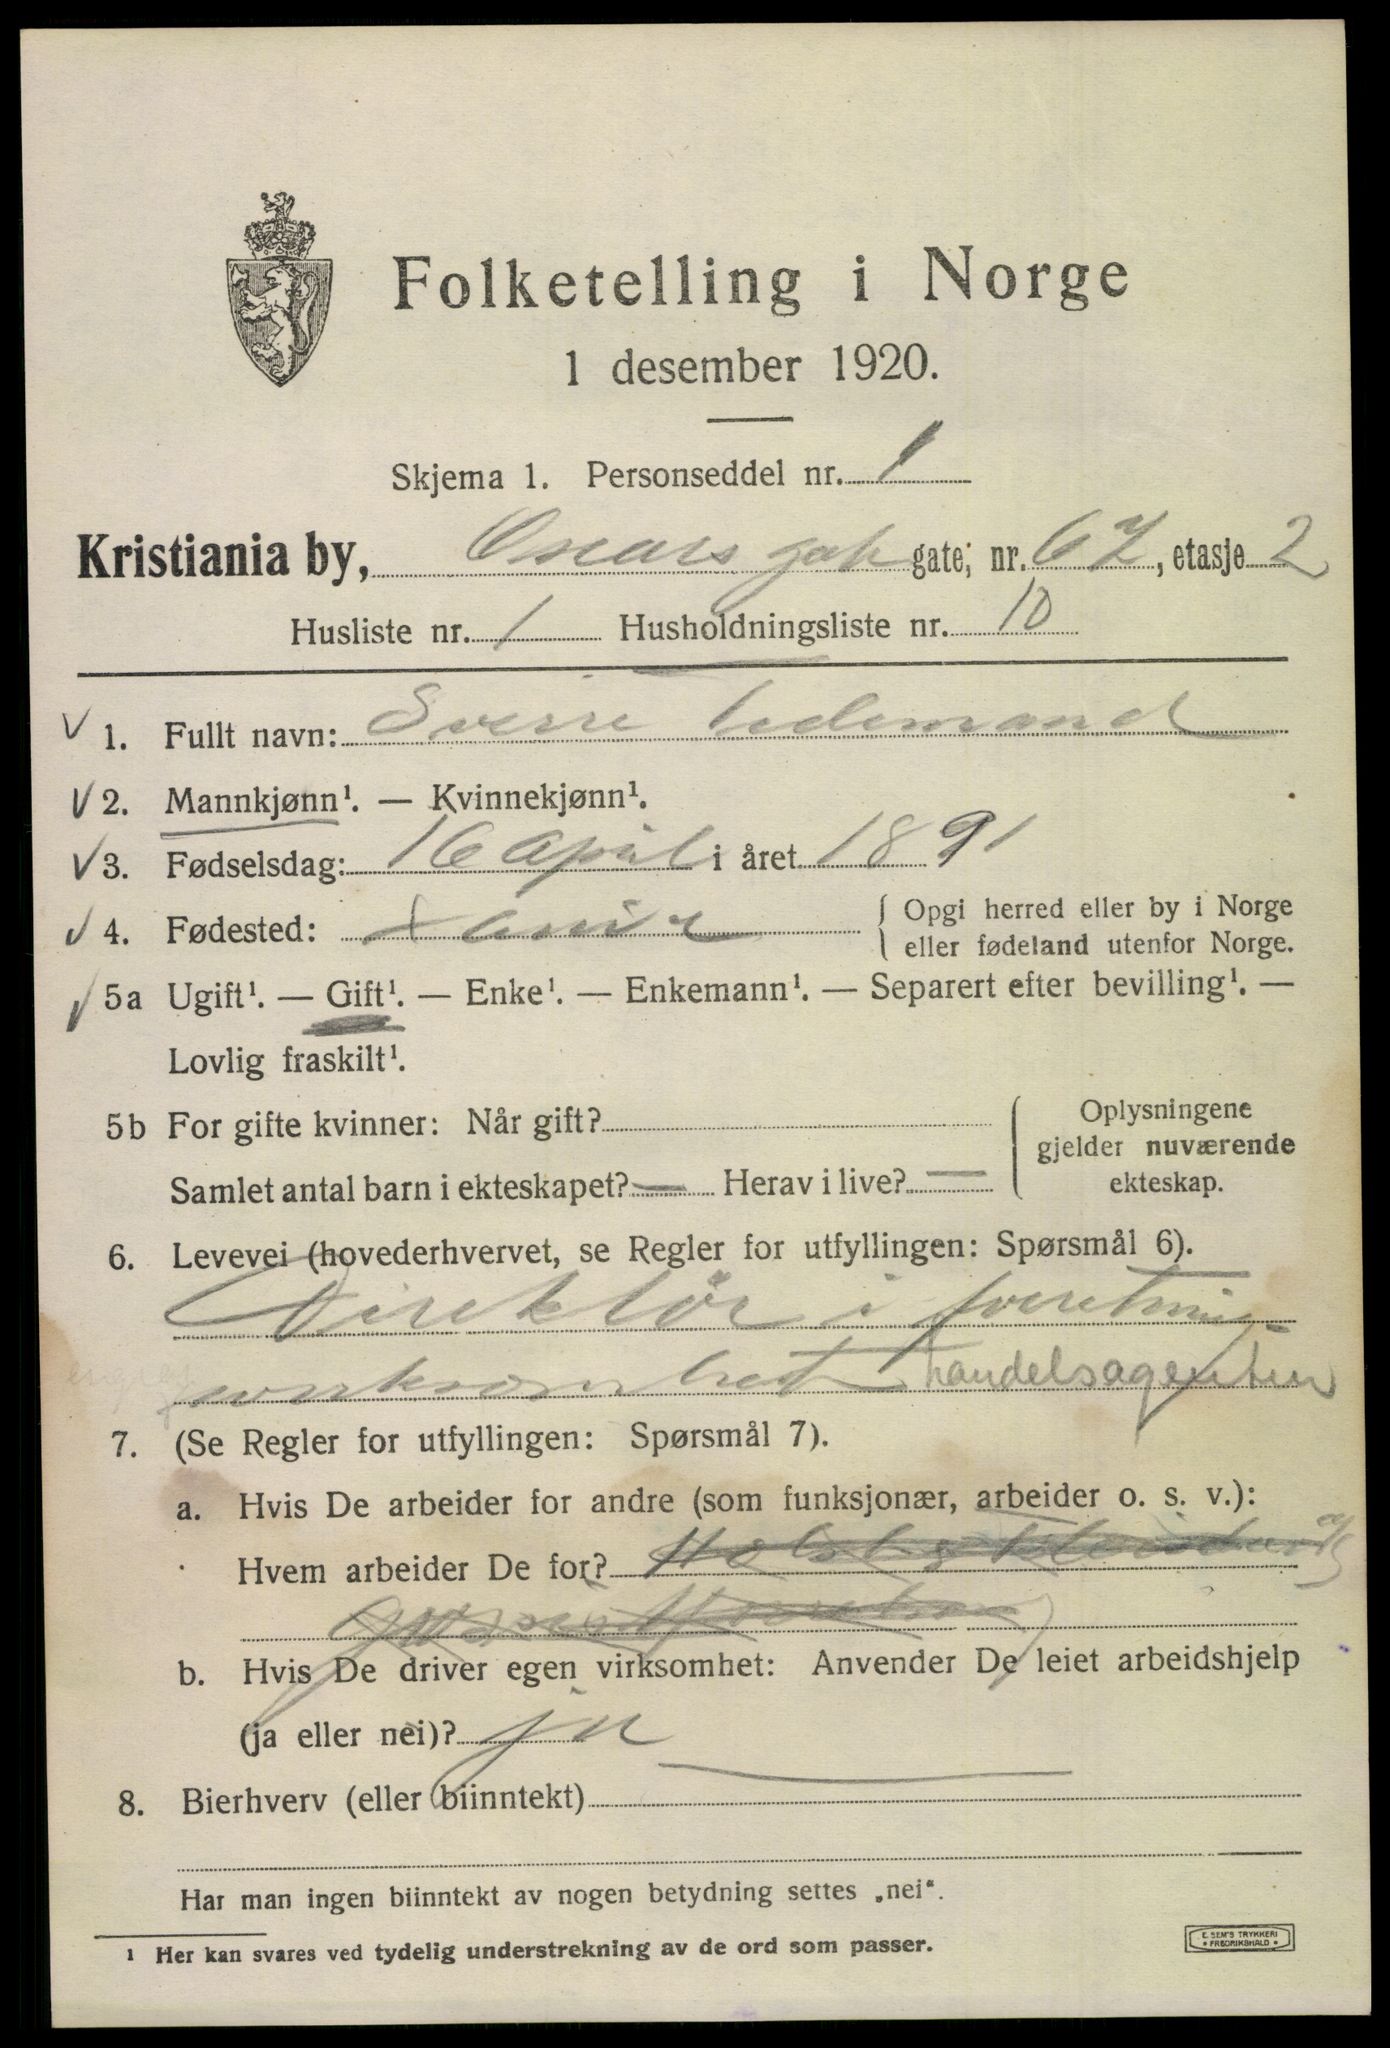 Folketelling i Norge
1 desember 1920.
Skjema 1. Personseddel nr. 1
Kristiania by, Oscars gate gate; nr. 67, etasje 2
Husliste nr. 1 Husholdningsliste nr. 10
√ 1. Fullt navn: Sverre Tidemand
√ 2. Mannkjønn¹. — Kvinnekjønn¹.
√ 3. Fødselsdag: 16 April i året 1891
√ 4. Fødested: { Opgi herred eller by i Norge
eller fødeland utenfor Norge.
√ 5a Ugift¹. — Gift¹. — Enke¹. — Enkemann¹. — Separert efter bevilling¹. —
Lovlig fraskilt¹.
5b For gifte kvinner: Når gift?
Samlet antal barn i ekteskapet? — Herav i live? —
Oplysningene
gjelder nuværende
ekteskap.
6. Levevei (hovederhvervet, se Regler for utfyllingen: Spørsmål 6).
Direktør i
handelsagentur
7. (Se Regler for utfyllingen: Spørsmål 7).
a. Hvis De arbeider for andre (som funksjonær, arbeider o. s. v.):
Hvem arbeider De for?
b. Hvis De driver egen virksomhet: Anvender De leiet arbeidshjelp
(ja eller nei)? ja
8. Bierhverv (eller biinntekt) —
Har man ingen biinntekt av nogen betydning settes „nei“.
¹ Her kan svares ved tydelig understrekning av de ord som passer.
E. SEM'S TRYKKERI
• FREDRIKSHALD •